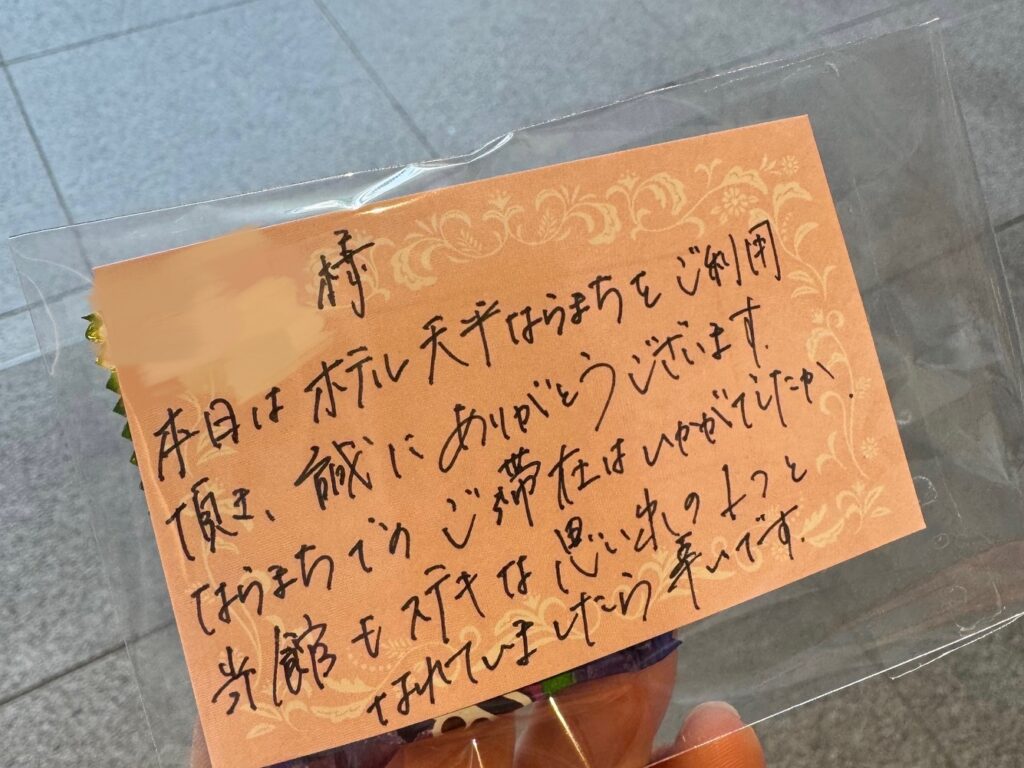 様
本日は ホテル天平ならまちを ご利用
頂き、誠に ありがとうございます.
ならまちでの ご滞在は いかがでしたか.
当館も ステキな 思い出の 1つと
なれていましたら 幸いです.